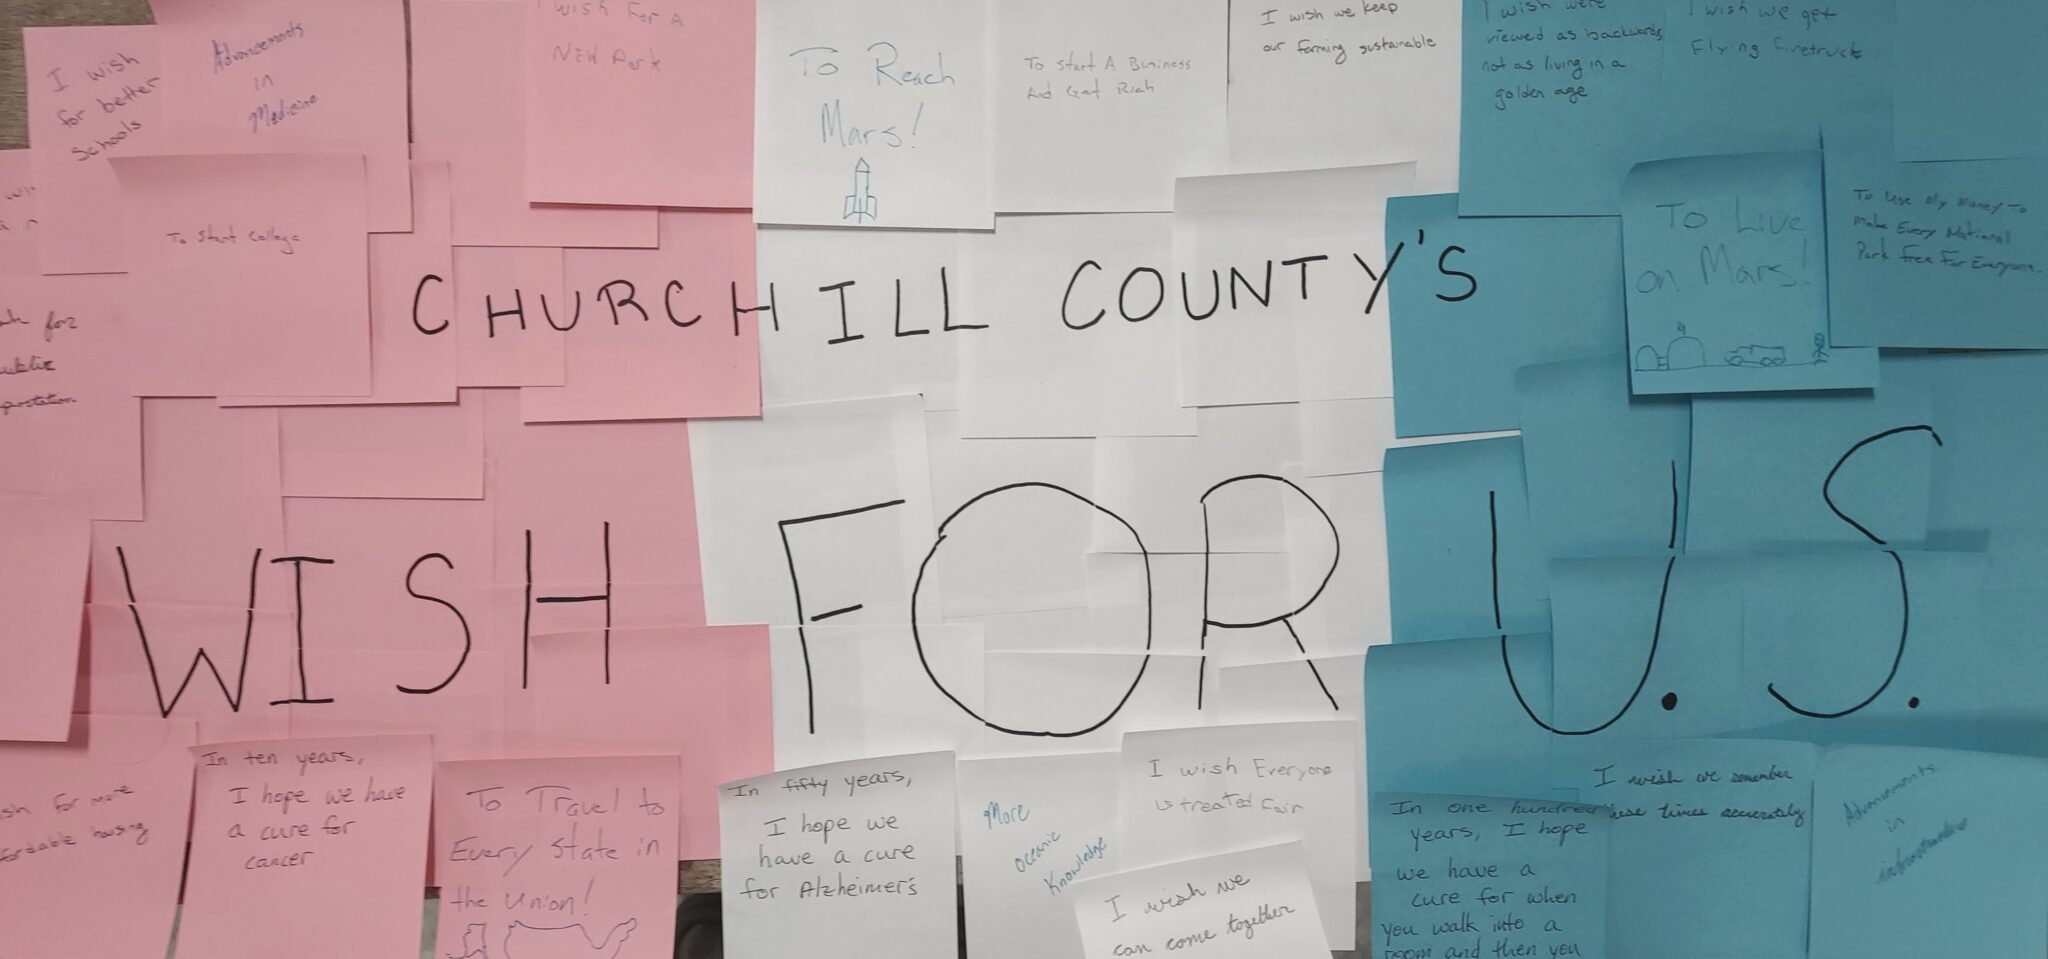 I wish
for better
schools
Advancements
in
Medicine
I wish For A
New Park
To Reach
Mars!
To start A Business
And Get Rich
I wish we keep
our farming sustainable
I wish were
viewed as backwards
not as living in a
golden age
I wish we get
Flying firetruck
To start College
To Live
on Mars!
To Use My Money To
Make Every National
Park Free For Everyone.
for
CHURCHILL COUNTY'S
WISH FOR U.S.
for more
housing
In ten years,
I hope we have
a cure for
cancer
To Travel to
Every State in
the Union!
In fifty years,
I hope we
have a cure
for Alzheimer's
More
Oceanic
Knowledge
I wish Everyone
is treated Fair
I wish we
can come together
In one hundred
years, I hope
we have a
cure for when
you walk into a
room and then you
I wish we remember
these times accurately
Advancements
in
infrastructure